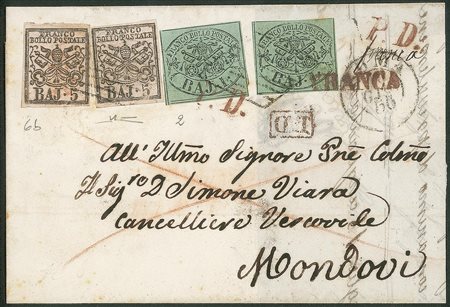 FRANCO
BOLLO POSTALE
BAJ. 5
FRANCO
BOLLO POSTALE
BAJ: 5
FRANCO BOLLO POSTALE
BAJ. 1
FRANCO BOLLO POSTALE
BAJ.
P. D.
P. D.
FRANCA
P.D
66
2
All' Illmo Signore Pne Colme
Il Sigre D Simone Viara
Cancelliere Vescovile
Mondovi